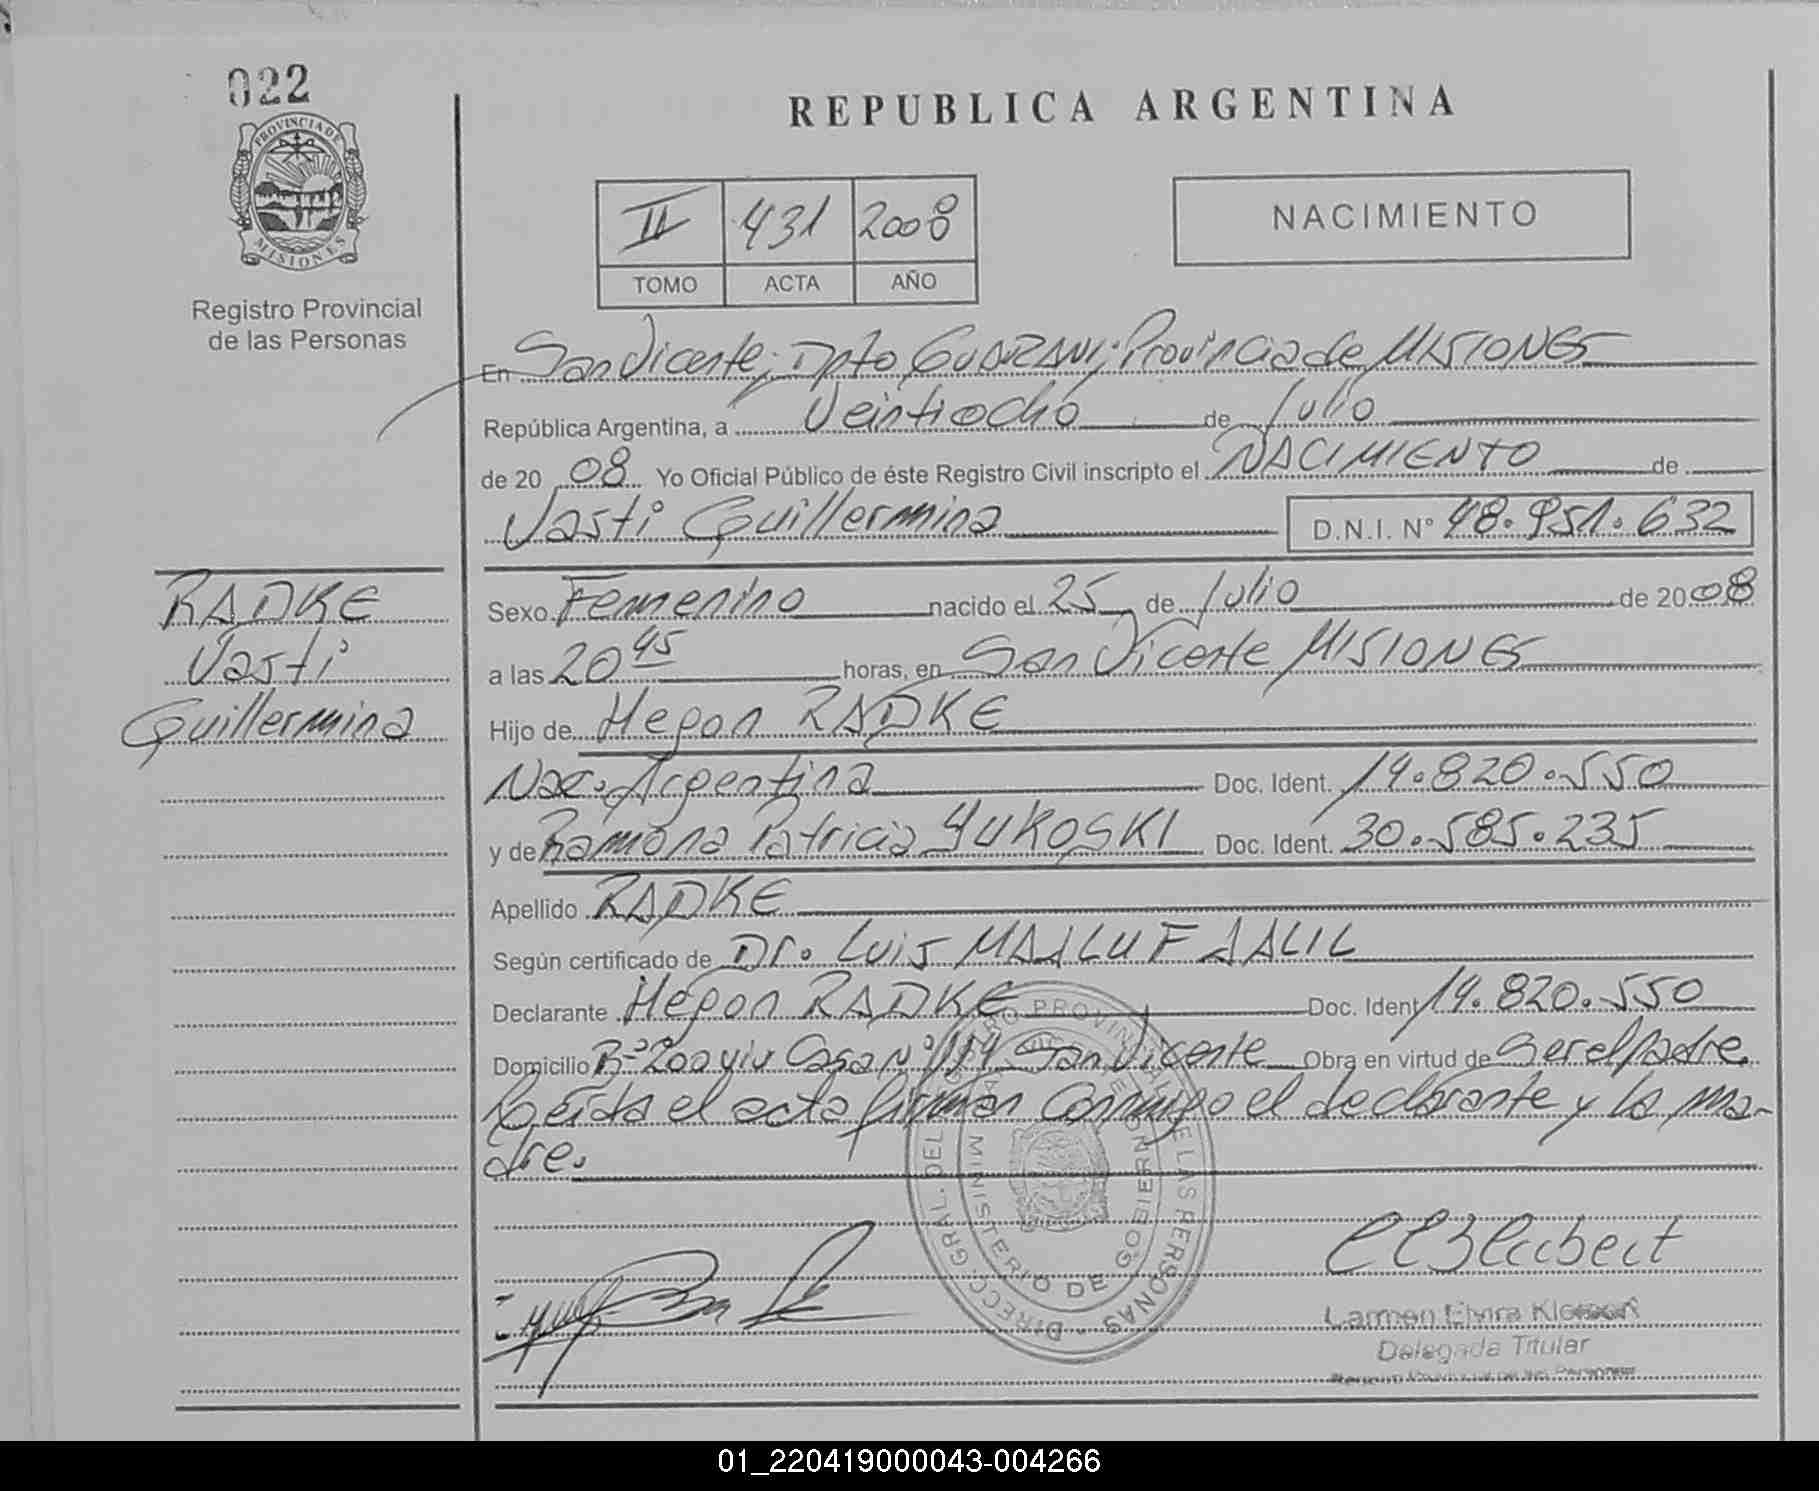 022
PROVINCIA DE
MISIONES
Registro Provincial
de las Personas
REPUBLICA ARGENTINA
II 431 2008
TOMO ACTA AÑO
NACIMIENTO
En San Vicente; Dpto GUARANI; Provincia de MISIONES
República Argentina, a Veintiocho de Julio
de 20 08 Yo Oficial Público de éste Registro Civil inscripto el NACIMIENTO de
Vasti Guillermina D.N.I. N° 48.951.632
RADKE
Vasti
Guillermina
Sexo Femenino nacido el 25 de Julio de 2008
a las 20 45 horas, en San Vicente MISIONES
Hijo de Hegon RADKE
Nac. Argentina Doc. Ident. 14.820.550
y de Ramona Patricia YUKOSKI Doc. Ident. 30.585.235
Apellido RADKE
Según certificado de Dr. Luis MAALUF AALIL
Declarante Hegon RADKE Doc. Ident 14.820.550
Domicilio B° 200 viv Casa N° 154 San Vicente Obra en virtud de Ser el Padre.
Leída el acta firman Conmigo el declarante y la ma-
dre.
DIRECC. GRAL. DEL REGISTRO PROVINCIAL DE LAS PERSONAS
MINISTERIO DE GOBIERNO
Delegada Titular
01_220419000043-004266